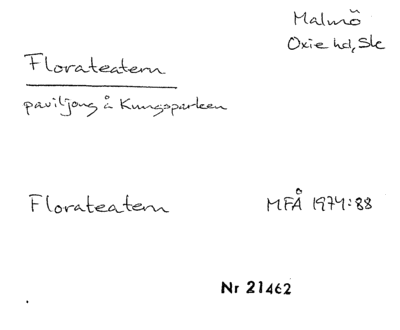 Malmö
Oxie hd, Sk
Florateatern
paviljong å Kungsparken
Florateatern MFÅ 1974:88
Nr 21462